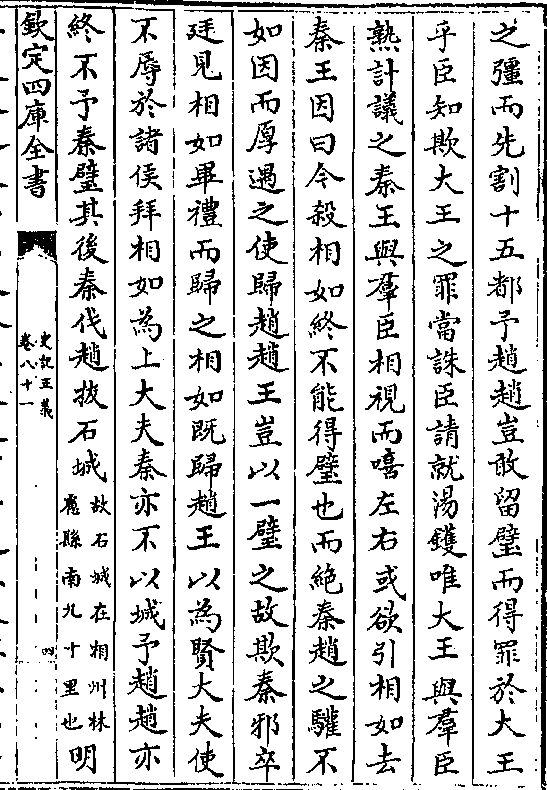 之彊而先割十五都予趙趙豈敢留璧而得罪於大王
乎臣知欺大王之罪當誅臣請就湯鑊唯大王與羣臣
熟計議之秦王與羣臣相視而嘻左右或欲引相如去
秦王因曰今殺相如終不能得璧也而絶秦趙之驩不
如因而厚遇之使歸趙趙王豈以一璧之故欺秦邪卒
廷見相如畢禮而歸之相如既歸趙王以為賢大夫使
不辱於諸侯拜相如為上大夫秦亦不以城予趙趙亦
終不予秦璧其後秦伐趙拔石城
故石城在相州林
慮縣南九十里也
明
欽定四庫全書
史記正義
卷八十一
四